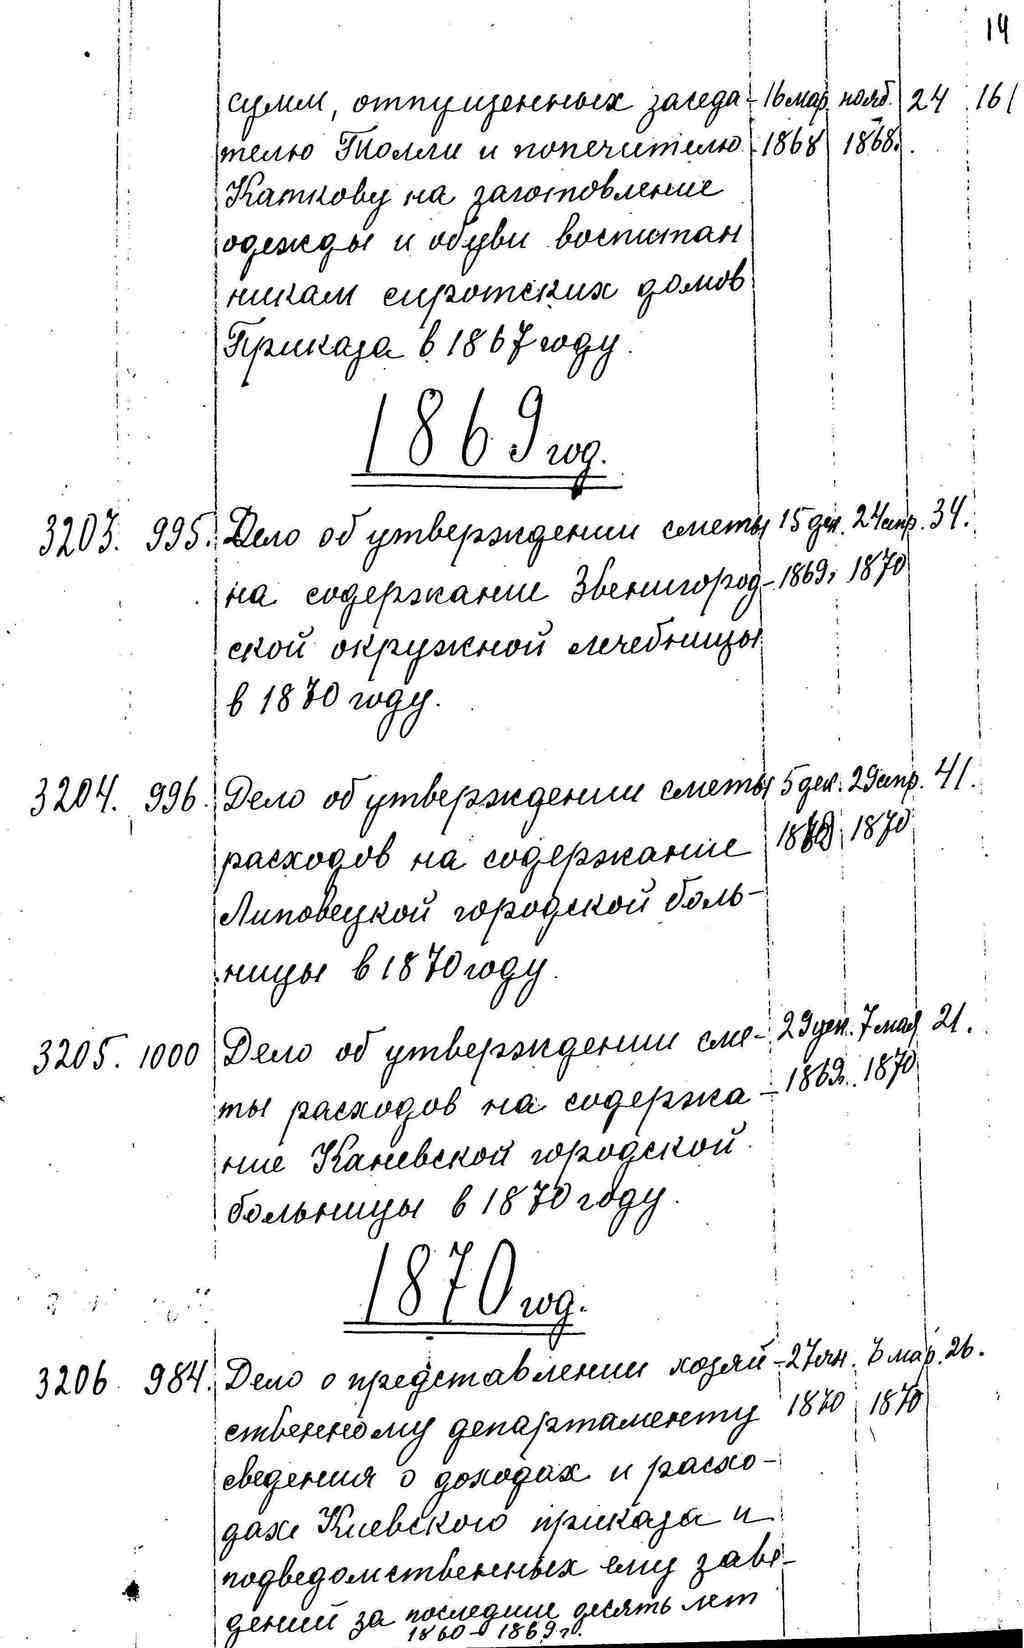 14
сумм, отпущенных заседа- 16 мар. нояб. 24 161
телю Толли и попечителю 1868 1868.
Каткову на заготовление
одежды и обуви воспитан
никам сиротских домов
Приказа в 1867 году.
1869 год.
3203. 995. Дело об утверждении сметы 15 дек. 24 апр. 34.
на содержание Звенигород- 1869. 1870
ской окружной лечебницы
в 1870 году.
3204. 996. Дело об утверждении сметы 5 дек. 29 апр. 41.
расходов на содержание 1870
Липовецкой городской боль-
ницы в 1870 году.
3205. 1000 Дело об утверждении сме- 29 дек. 7 мая 21.
ты расходов на содержа- 1869. 1870
ние Каневской городской
больницы в 1870 году.
1870 год.
3206 984. Дело о представлении хозяй- 27 янв. мар. 26.
ственному департаменту 1870 1870
сведения о доходах и расхо-
дах Киевского приказа и
подведомственных ему заве-
дений за последние десять лет
1860-1869 г.